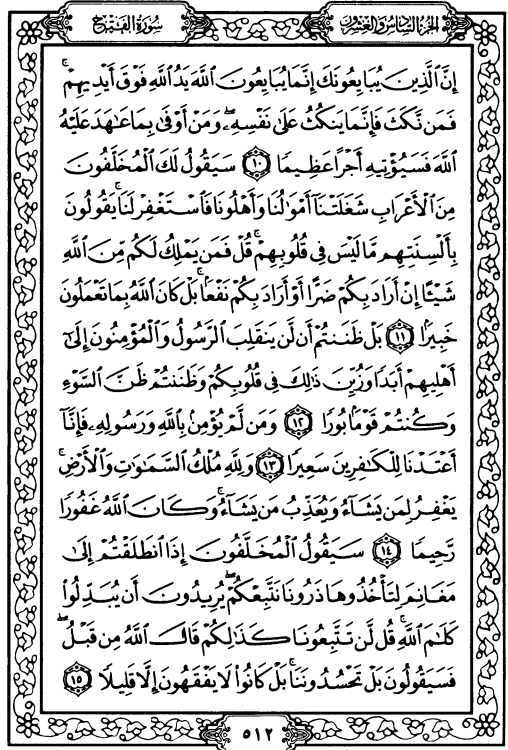 سُورَةُ الفَتْحِ الجُزْءُ السَّادِسُ وَالعِشْرُونَ
إِنَّ ٱلَّذِينَ يُبَايِعُونَكَ إِنَّمَا يُبَايِعُونَ ٱللَّهَ يَدُ ٱللَّهِ فَوْقَ أَيْدِيهِمْۚ
فَمَن نَّكَثَ فَإِنَّمَا يَنكُثُ عَلَىٰ نَفْسِهِۦۖ وَمَنْ أَوْفَىٰ بِمَا عَٰهَدَ عَلَيْهُ
ٱللَّهَ فَسَيُؤْتِيهِ أَجْرًا عَظِيمًا ۝١٠ سَيَقُولُ لَكَ ٱلْمُخَلَّفُونَ
مِنَ ٱلْأَعْرَابِ شَغَلَتْنَآ أَمْوَٰلُنَا وَأَهْلُونَا فَٱسْتَغْفِرْ لَنَاۚ يَقُولُونَ
بِأَلْسِنَتِهِم مَّا لَيْسَ فِي قُلُوبِهِمْۚ قُلْ فَمَن يَمْلِكُ لَكُم مِّنَ ٱللَّهِ
شَيْـًٔا إِنْ أَرَادَ بِكُمْ ضَرًّا أَوْ أَرَادَ بِكُمْ نَفْعَۢاۚ بَلْ كَانَ ٱللَّهُ بِمَا تَعْمَلُونَ
خَبِيرَۢا ۝١١ بَلْ ظَنَنتُمْ أَن لَّن يَنقَلِبَ ٱلرَّسُولُ وَٱلْمُؤْمِنُونَ إِلَىٰٓ
أَهْلِيهِمْ أَبَدًا وَزُيِّنَ ذَٰلِكَ فِي قُلُوبِكُمْ وَظَنَنتُمْ ظَنَّ ٱلسَّوْءِ
وَكُنتُمْ قَوْمَۢا بُورًا ۝١٢ وَمَن لَّمْ يُؤْمِنۢ بِٱللَّهِ وَرَسُولِهِۦ فَإِنَّآ
أَعْتَدْنَا لِلْكَٰفِرِينَ سَعِيرًا ۝١٣ وَلِلَّهِ مُلْكُ ٱلسَّمَٰوَٰتِ وَٱلْأَرْضِۚ
يَغْفِرُ لِمَن يَشَآءُ وَيُعَذِّبُ مَن يَشَآءُۚ وَكَانَ ٱللَّهُ غَفُورًا
رَّحِيمًا ۝١٤ سَيَقُولُ ٱلْمُخَلَّفُونَ إِذَا ٱنطَلَقْتُمْ إِلَىٰ
مَغَانِمَ لِتَأْخُذُوهَا ذَرُونَا نَتَّبِعْكُمْۖ يُرِيدُونَ أَن يُبَدِّلُوا۟
كَلَٰمَ ٱللَّهِۚ قُل لَّن تَتَّبِعُونَا كَذَٰلِكُمْ قَالَ ٱللَّهُ مِن قَبْلُۖ
فَسَيَقُولُونَ بَلْ تَحْسُدُونَنَاۚ بَلْ كَانُوا۟ لَا يَفْقَهُونَ إِلَّا قَلِيلًا ۝١٥
٥١٢